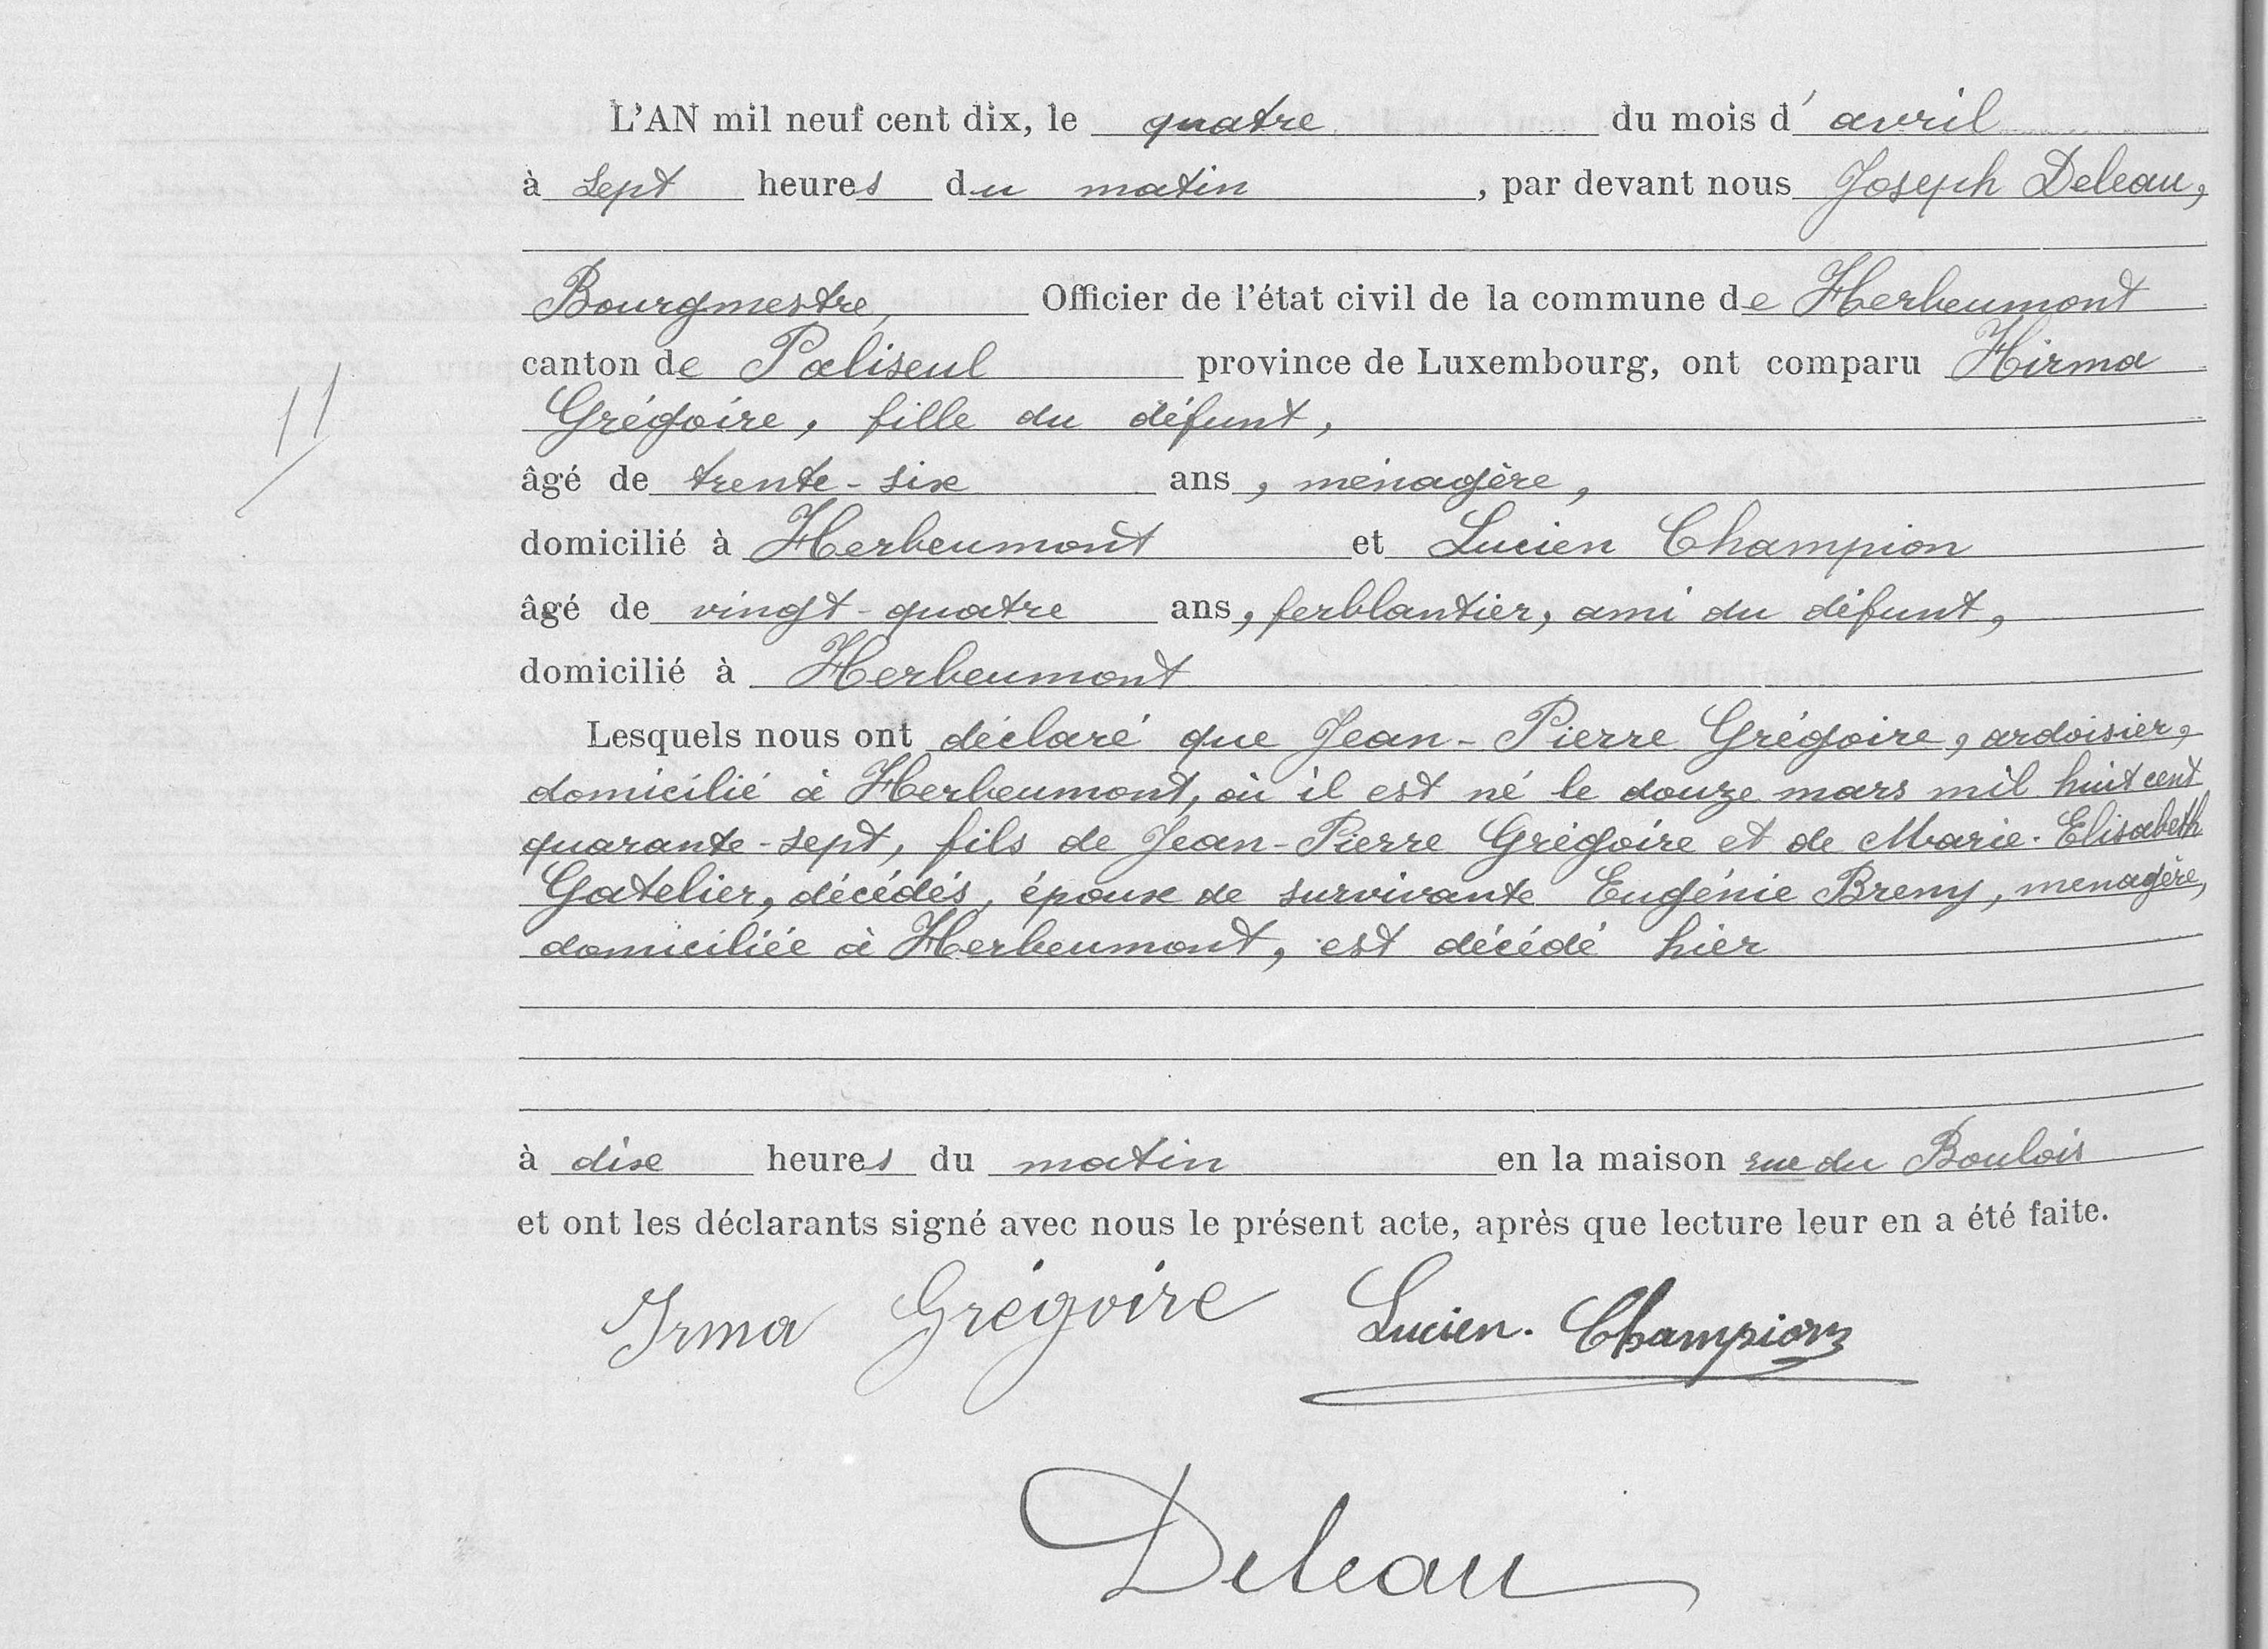 L'AN mil neuf cent dix, le quatre du mois d'avril
à sept heures du matin, par devant nous Joseph Deleau,
Bourgmestre, Officier de l'état civil de la commune de Herbeumont
canton de Paliseul province de Luxembourg, ont comparu Hirma
11
Grégoire, fille du défunt,
âgé de trente-six ans, ménagère,
domicilié à Herbeumont et Lucien Champion
âgé de vingt-quatre ans, ferblantier, ami du défunt,
domicilié à Herbeumont
Lesquels nous ont déclaré que Jean-Pierre Grégoire, ardoisier,
domicilié à Herbeumont, où il est né le douze mars mil huit cent
quarante-sept, fils de Jean-Pierre Grégoire et de Marie-Elisabeth
Gatelier, décédés, époux de survivante Eugénie Bremy, menagère,
domiciliée à Herbeumont, est décédé hier
à dix heures du matin en la maison rue du Boulois
et ont les déclarants signé avec nous le présent acte, après que lecture leur en a été faite.
Irma Grégoire Lucien. Champion
Deleau